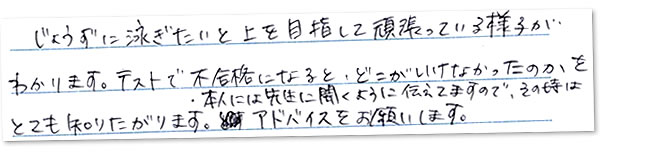 じょうずに泳ぎたいと上を目指して頑張っている様子が
わかります。テストで不合格になると、どこがいけなかったのか、を
・本人には先生に聞くように伝えてますので、その時は
とても知りたがります。アドバイスをお願いします。